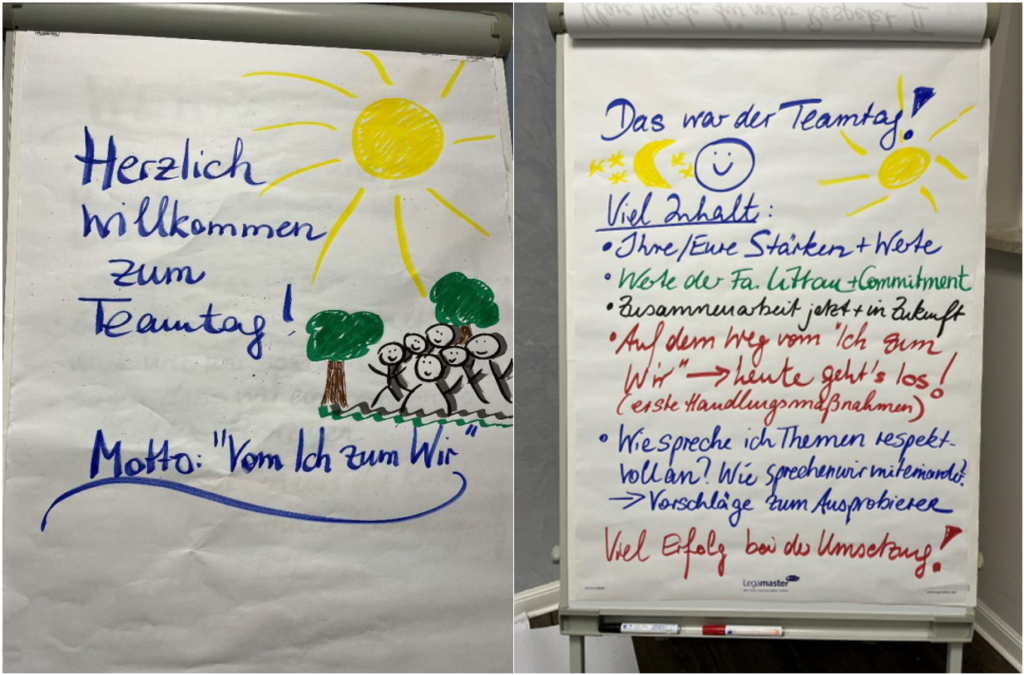 Herzlich
Willkommen
zum
Teamtag!
Motto: "Vom Ich zum Wir"
Das war der Teamtag!
Viel Inhalt:
• Ihre/Eure Stärken + Werte
• Werte der Fa. Littau + Commitment
• Zusammenarbeit jetzt + in Zukunft
• Auf dem Weg vom "Ich zum
Wir" → heute geht's los!
(erste Handlungsmaßnahmen)
• Wie spreche ich Themen respekt-
voll an? Wie sprechen wir miteinander?
→ Vorschläge zum Ausprobieren
Viel Erfolg bei der Umsetzung!
Legamaster